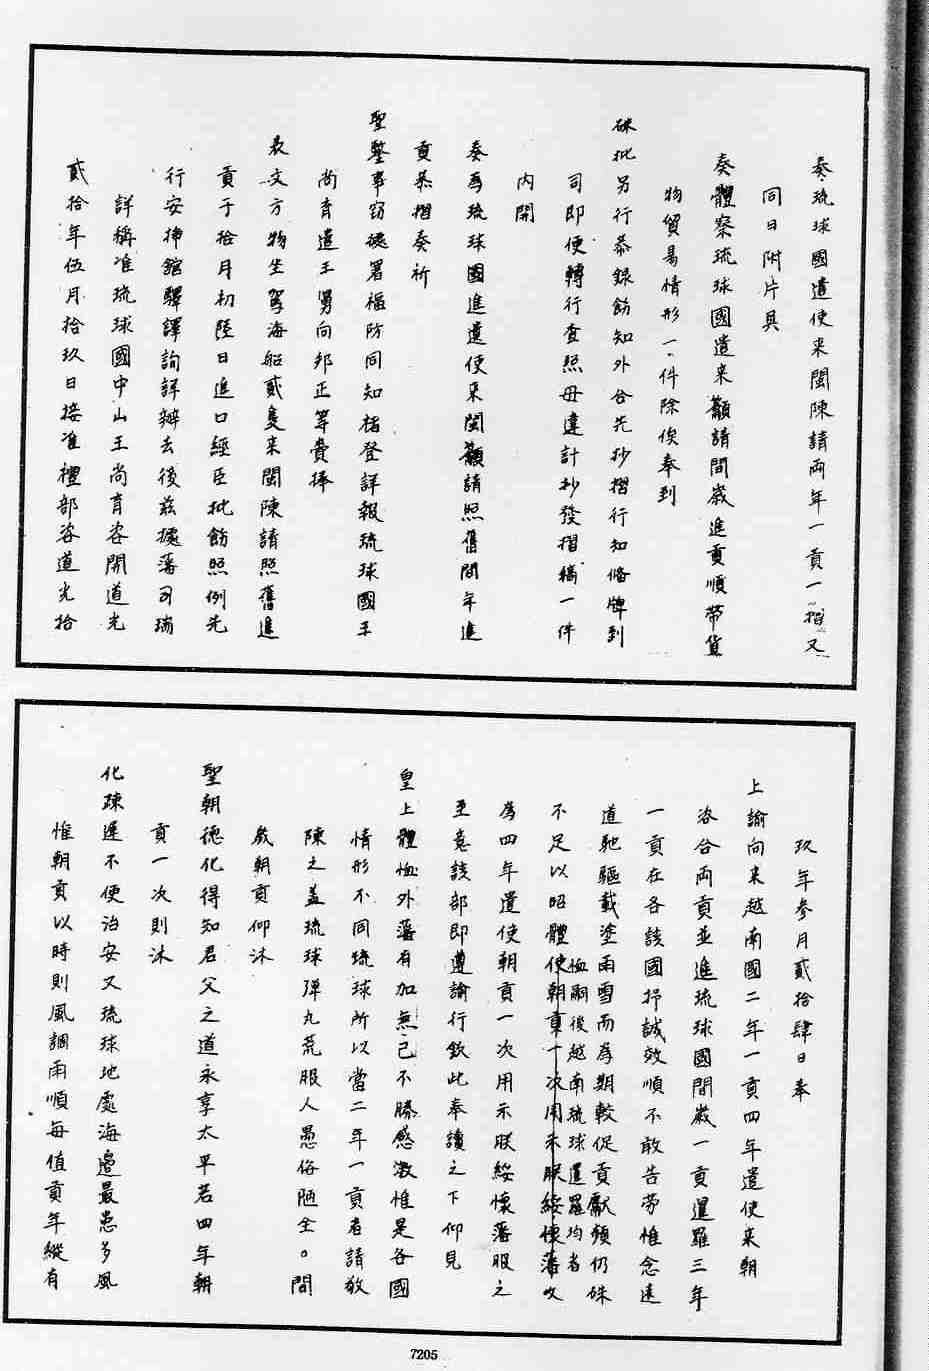 奏琉球國遣使来閩陳請兩年一貢一摺又
同日附片具
奏體察琉球國遣来籲請間歲進貢順帶貨
物貿易情形一件除俟奉到
硃批另行恭錄飭知外合先抄摺行知俻牌到
司即便轉行查照毋違計抄發摺稿一件
内開
奏為琉球國進遣使来閩籲請照舊間年進
貢恭摺奏祈
聖鑒事窃據署福防同知楮登詳報琉球國王
尚育遣王舅向邦正等賫捧
表文方物坐駕海船貳隻来閩陳請照舊進
貢于拾月初陸日進口經臣批飭照例先
行安插舘驛譯詢詳辦去後茲據藩司瑞
詳稱准琉球國中山王尚育咨開道光
貳拾年伍月拾玖日接准禮部咨道光拾
玖年叄月貳拾肆日奉
上諭向来越南國二年一貢四年遣使来朝
洛合兩貢並進琉球國間歲一貢暹羅三年
一貢在各該國抒誠效順不敢告劳惟念遠
道馳驅載塗雨雪而為期較促貢獻頻仍殊
不足以昭體恤嗣後越南琉球暹羅均著
為四年遣使朝貢一次用示朕綏懷藩服之
至意該部即遵諭行欽此奉讀之下仰見
皇上體恤外藩有加無己不勝感激惟是各國
情形不同琉球所以當二年一貢者請敬
陳之盖琉球弹丸荒服人愚俗陋全。間
歲朝貢仰沐
聖朝德化得知君父之道永享太平若四年朝
貢一次則沐
化疎遲不便治安又琉球地處海邊最患多風
惟朝貢以時則風調雨順每值貢年縱有
7205